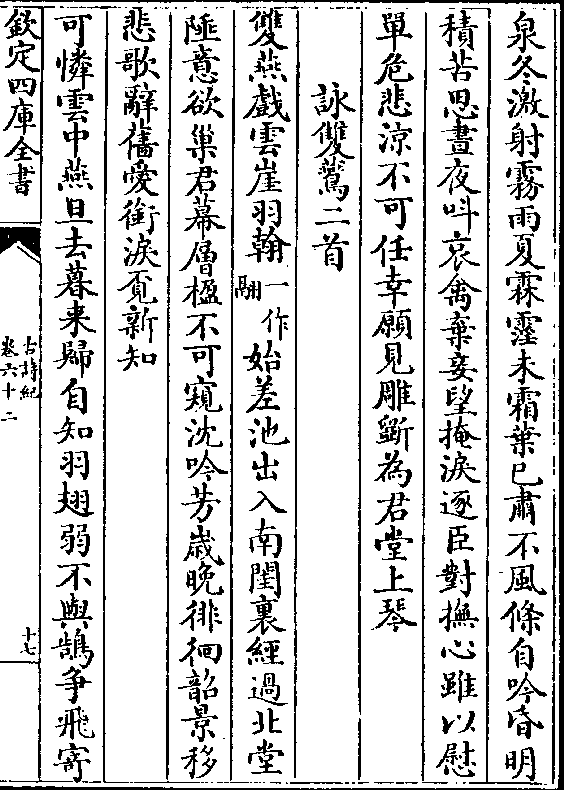 泉冬激射霧雨夏霖霪未霜葉已肅不風條自吟昏明
積苦思晝夜叫哀禽棄妾望掩淚逐臣對撫心雖以慰
單危悲涼不可任幸願見雕斵為君堂上琴
詠雙鷰二首
雙燕戲雲崖羽翰一作翮始差池出入南閨裏經過北堂
陲意欲巢君幕層楹不可窺沈吟芳歲晚徘徊韶景移
悲歌辭舊愛銜淚覓新知
可憐雲中燕旦去暮來歸自知羽翅弱不與鵠爭飛寄
欽定四庫全書
古詩紀
卷六十二
十七